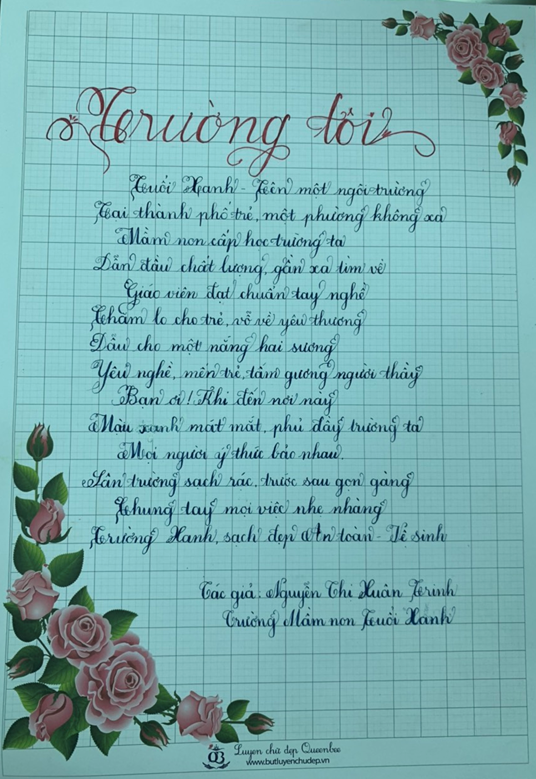 Trường tôi
Tuổi Xanh - Tên một ngôi trường
Tại thành phố trẻ, một phường không xa
Mầm non cấp học trường ta
Dẫn đầu chất lượng, gần xa tìm về
Giáo viên đạt chuẩn tay nghề
Chăm lo cho trẻ, vỗ về yêu thương
Dẫu cho một nắng hai sương
Yêu nghề, mến trẻ, tấm gương người thầy
Bạn ơi! Khi đến nơi này
Màu xanh mát mắt, phủ đầy trường ta
Mọi người ý thức bảo nhau.
Sân trường sạch rác, trước sau gọn gàng
Chung tay mọi việc nhẹ nhàng
Trường Xanh, sạch đẹp An toàn - Vệ sinh
Tác giả: Nguyễn Thị Xuân Trinh
Trường Mầm non Tuổi Xanh
Luyện chữ đẹp Queenbee
www.butluyenchudep.vn